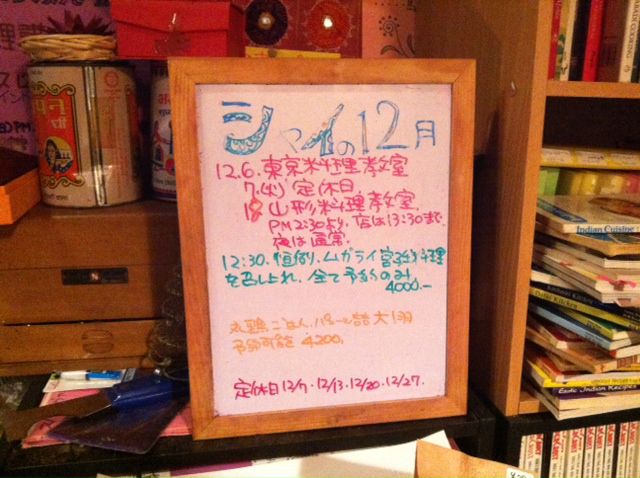 シャイの12月
12.6.東京料理教室
7.(火)定休日.
18 山形料理教室
PM2:30より.店は13:30まで.
夜は通常.
12:30.恒例.ムガライ宮廷料理
を召し上れ.全て予約のみ
4000.-
丸鶏ごはん.パニール詰大1羽
予約可能 4,200.
定休日12/7.12/13.12/20.12/27.
Indian Cuisine
Exotic Indian Recipes